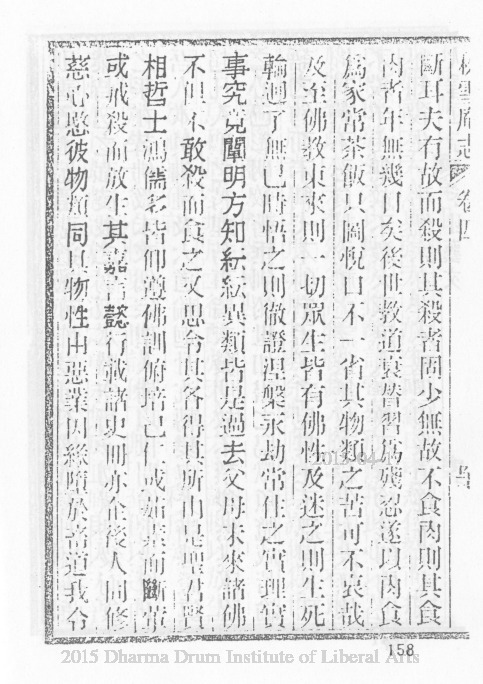 雪庵志 卷四
斷耳夫有故而殺則其殺者固少無故不食肉則其食
肉者年無幾日矣後世教道衰替習為殘忍遂以肉食
為家常茶飯只圖悅口不一省其物類之苦可不哀哉
及至佛教東來則一切眾生皆有佛性及迷之則生死
輪迴了無已時悟之則徹證涅槃永劫常住之實理實
事究竟闡明方知紜紜異類皆是過去父母未來諸佛
不但不敢殺而食之又思令其各得其所由是聖君賢
相哲士鴻儒多皆仰遵佛訓俯培己仁或茹素而斷葷
或戒殺而放生其嘉言懿行載諸史冊亦企後人同修
慈心愍彼物類同具物性由惡業因緣墮於畜道我今
158
2015 Dharma Drum Institute of Liberal Arts